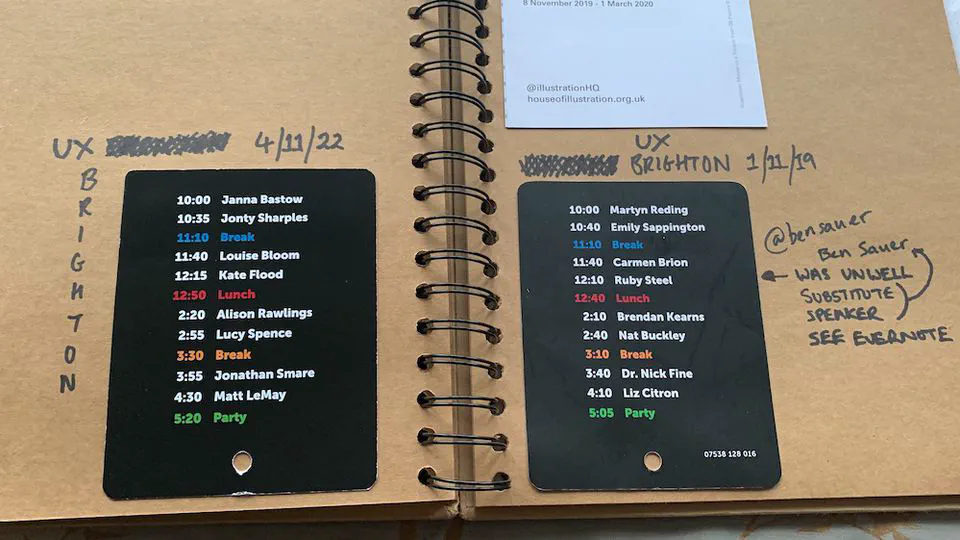 UX 4/11/22
BRIGHTON
10:00 Janna Bastow
10:35 Jonty Sharples
11:10 Break
11:40 Louise Bloom
12:15 Kate Flood
12:50 Lunch
2:20 Alison Rawlings
2:55 Lucy Spence
3:30 Break
3:55 Jonathan Smare
4:30 Matt LeMay
5:20 Party
8 November 2019 - 1 March 2020
@illustrationHQ
houseofillustration.org.uk
UX
BRIGHTON 1/11/19
10:00 Martyn Reding
10:40 Emily Sappington
11:10 Break
11:40 Carmen Brion
12:10 Ruby Steel
12:40 Lunch
2:10 Brendan Kearns
2:40 Nat Buckley
3:10 Break
3:40 Dr. Nick Fine
4:10 Liz Citron
5:05 Party
07538 128 016
@bensauer
Ben Sauer
WAS UNWELL
SUBSTITUTE
SPEAKER
SEE EVERNOTE